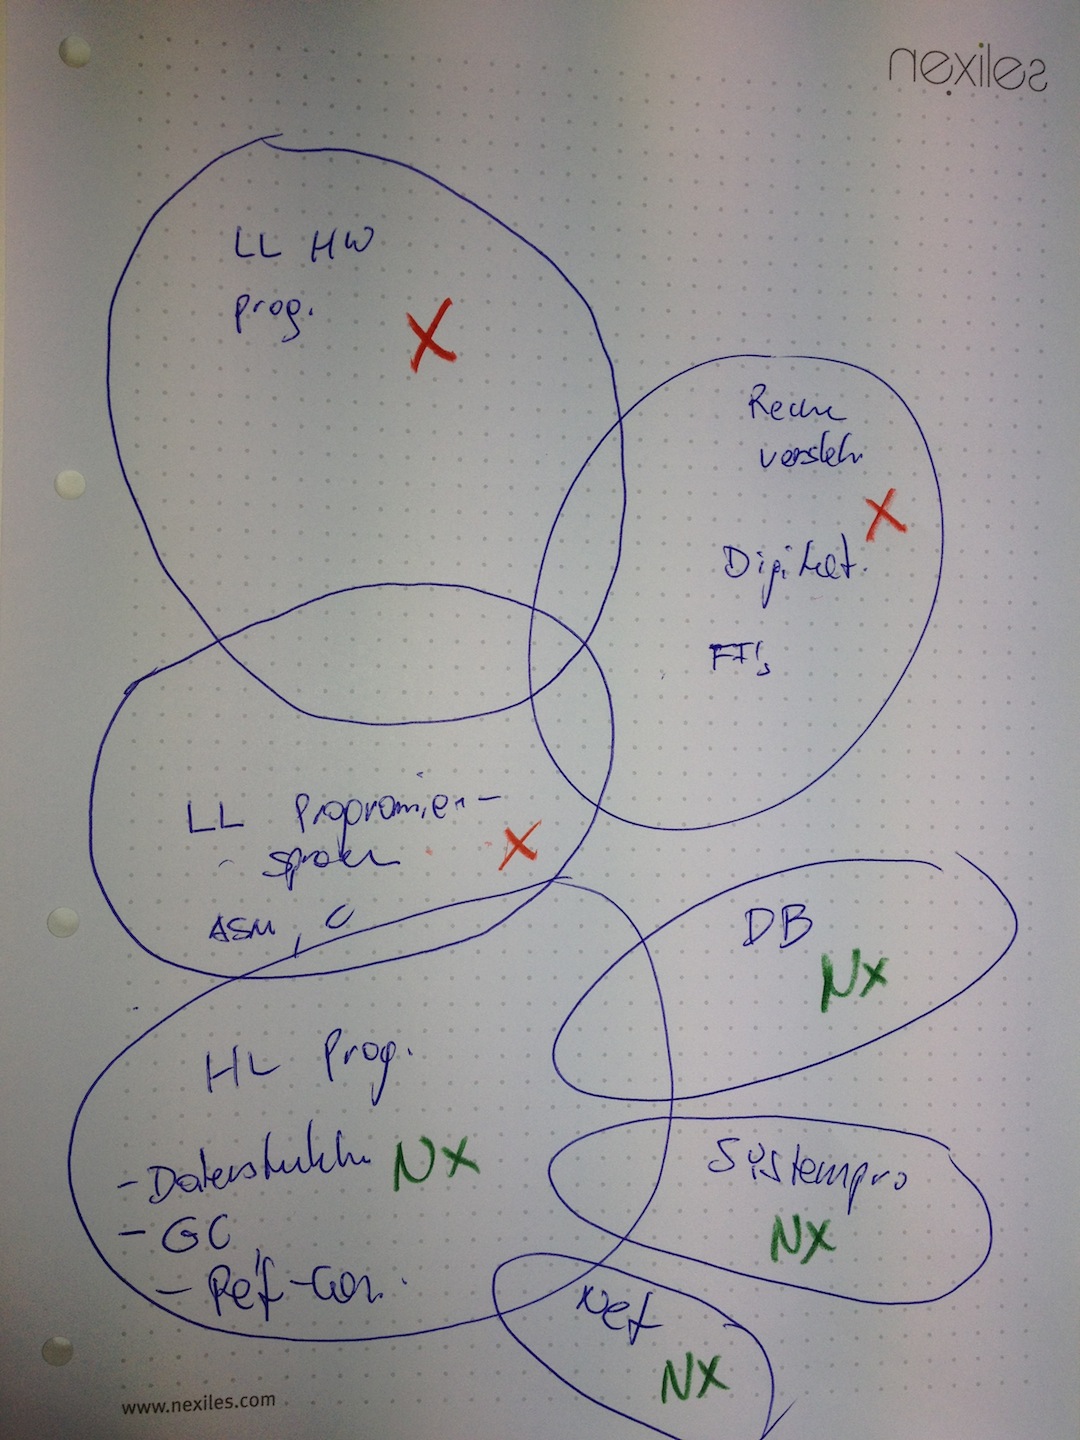 nexiles
LL HW
prog.
X
Reche
versteh
X
Digitalt.
FF's
LL Programmier-
sprach
X
ASM, C
DB
NX
HL Prog.
- Datenstruktu
NX
- GC
- Ref-Con.
Systempro
NX
Net
NX
www.nexiles.com